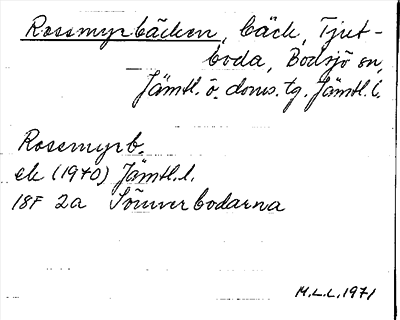 Rossmyrbäcken, bäck, Tjut-
boda, Bodsjö sn,
Jämtl. ö. doms. tg. Jämtl. l.
Rossmyrb.
ek (1970) Jämtl. l.
18F 2a Sömverbodarna
M.L.L. 1971